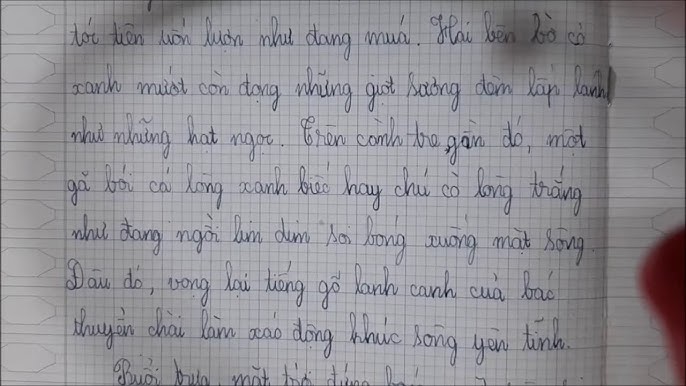 tới tiên uốn lượn như đang múa. Hai bên bờ cỏ
xanh mướt còn đọng những giọt sương đêm lấp lánh
như những hạt ngọc. Trên cành tre gần đó, một
gã bói cá lông xanh biếc hay chú cò lông trắng
như đang ngồi lim dim soi bóng xuống mặt sông.
Đâu đó, vọng lại tiếng gõ lanh canh của bác
thuyền chài làm xáo động khúc sông yên tĩnh.
Buổi trưa, mặt trời đứng